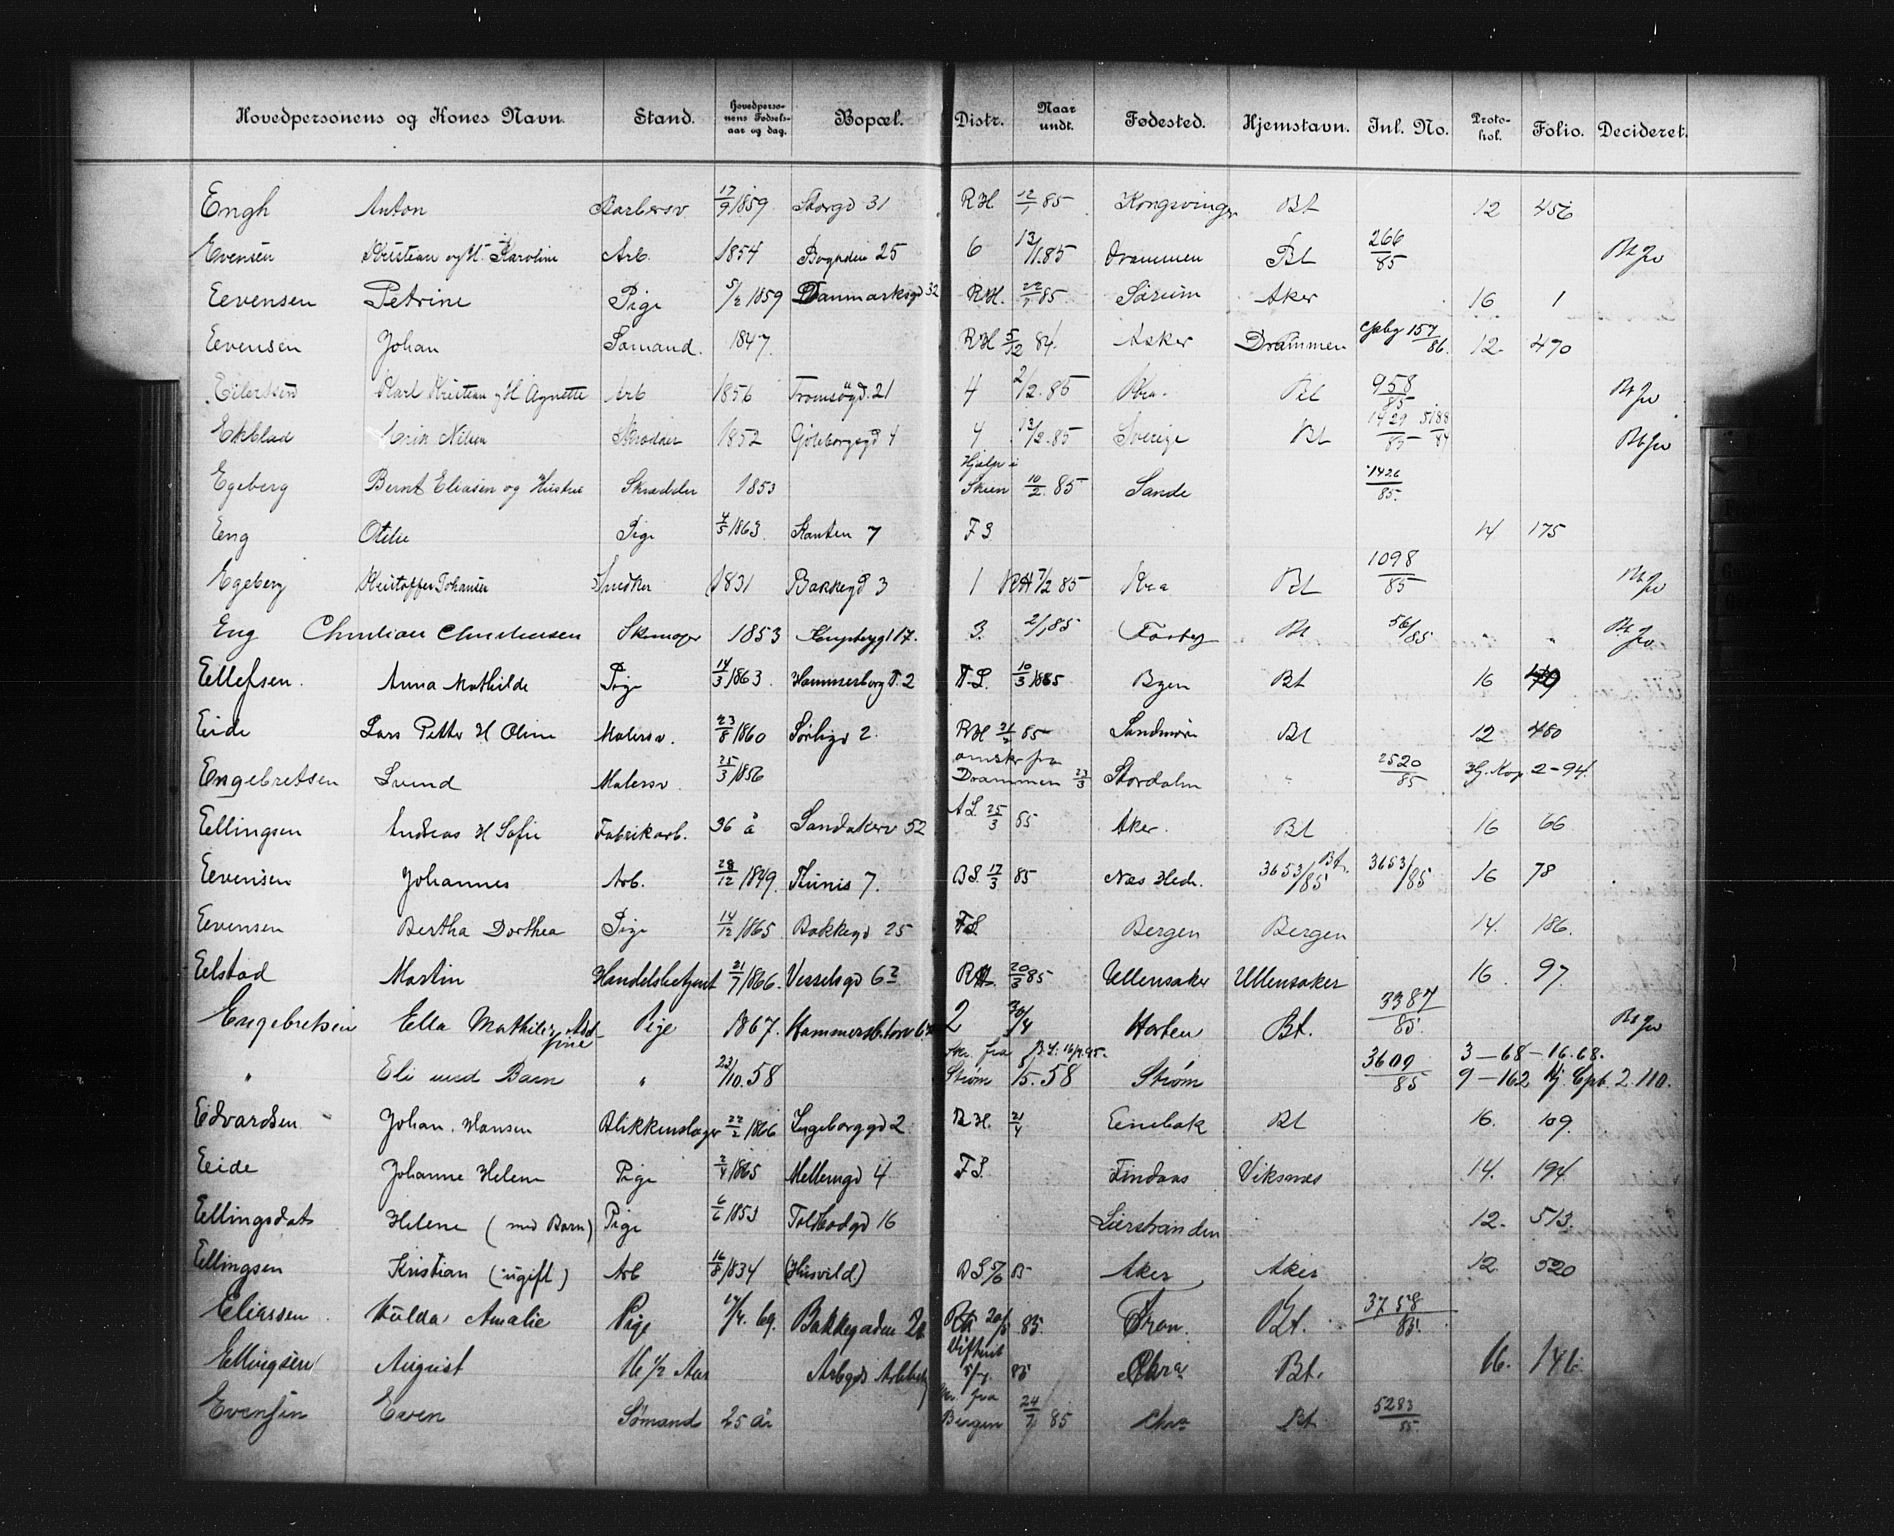 Hovedpersonens og Kones Navn. Stand. Hovedpersonens Fødselsaar og dag. Bopæl. Distr. Naar undt. Fødested. Hjemstavn. Inl. No. Protokol. Folio. Decideret.
Engh Anton 17/9 1859 Storgd 31 RH 12/1 85 Kongsvinger Bt 12 456
Evensen Kristian og H. Karoline Arb. 1854 25 6 13/1 85 Drammen Bt 266/85
Eevensen Petrine Pige 5/2 1859 Danmarksgd 32 RH. 22/1 85 Sørum Aker 16 1
Eevensen Johan Sømand. 1847. RH 5/12 84. Asker Drammen 157/86. 12. 470
Eilertsen Karl Kristian og H Agnette Arb 1856 Tromsøgd. 21 4 2/2. 85 Kra. Bt 958/85
Ekblad Nilsen 1852 Göteborggd 4 4 13/2. 85 Sverige Bt 1429/85 5188/84
Egeberg Bernt Eliasen og Hustru Skrædder 1853 Hjælp i Skien 10/2. 85 Sande 1426/85.
Eng Otilie Pige 4/5 1863. Kanten 7 F S. 14 175
Egeberg Kristoffer Johansen Snedker 1831 Bakkegd 3 1 RH 7/2 85 Kra Bt 1098/85
Eng Christian Christensen Skomager 1853 17. 3. 2/1 85 Bt 56/85
Ellefsen. Anna Mathilde Pige 14/3 1863. Hammersborg T. 2 T. S. 10/3 1885 Bt 16 70
Eide Lars Petter H Oline Malersv. 23/8 1860 Sørligd 2. RH 85 Søndmøre Bt 12 480
Engebretsen Svend Malersv. 25/3 1856 ønsker fra Drammen 23/3 Stordalen 2520/85 Hj. Kop. 2-94.
Eellingsen Andreas H Sofie Fabrikarb. 36 å Sandakerv 52 A S. 25/3 85 Aker. Bt 16 66
Eevensen Johannes Arb. 28/12 1849. Tunis 7. B S. 17/3 85 Næs Hedm. 3653/85 Bt. 3653/85 16 78
Eevensen Bertha Dorthea Pige 14/12 1865. Bakkegd 25 F S. Bergen Bergen 14. 186.
Eelstad Martin Handelsbetjent 21/7 1866. Vesselsgd 6 RH. 20/3 85 Ullensaker Ullensaker 16. 97.
Engebretsen Ella Mathilde Pige 1867. Hammersb. torv 2 30/4 Horten Bt. 3387/85.
" Eli med Barn " 23/10. 58 Skr. fra Strøm Strøm 3609/85 3-68-16.68.
9-162 Hj. Cpb. 2. 110.
Edvardsen Johan. Hansen Blikkenslager 22/2 1866 Ingeborggd 2 RH. 21/4 Enebak Bt 16. 109.
Eeide Johanne Helene Pige 2/4 1865 Møllergd 4 F S. Findaas Viksnes 14. 194
Eellingsdat. Helene (med Barn) Pige 6/6 1853 Toldbodgd 16 Lierstranden 12. 513.
Ellingsen Kristian (ugift) Arb 16/8 1834 (Husvild) B S 5/6 85 Aker Aker 12. 520
Eliassen Hulda Amalie Pige 17/4. 69. Bakkegaden 85. Bt. 3758/85.
Ellingsen August 16 1/2 Aar Chra Bt. 16. 146
Evensen Even Sømand 25 år Skr. fra Bergen 24/7 85 Chra Bt. 5283/85.